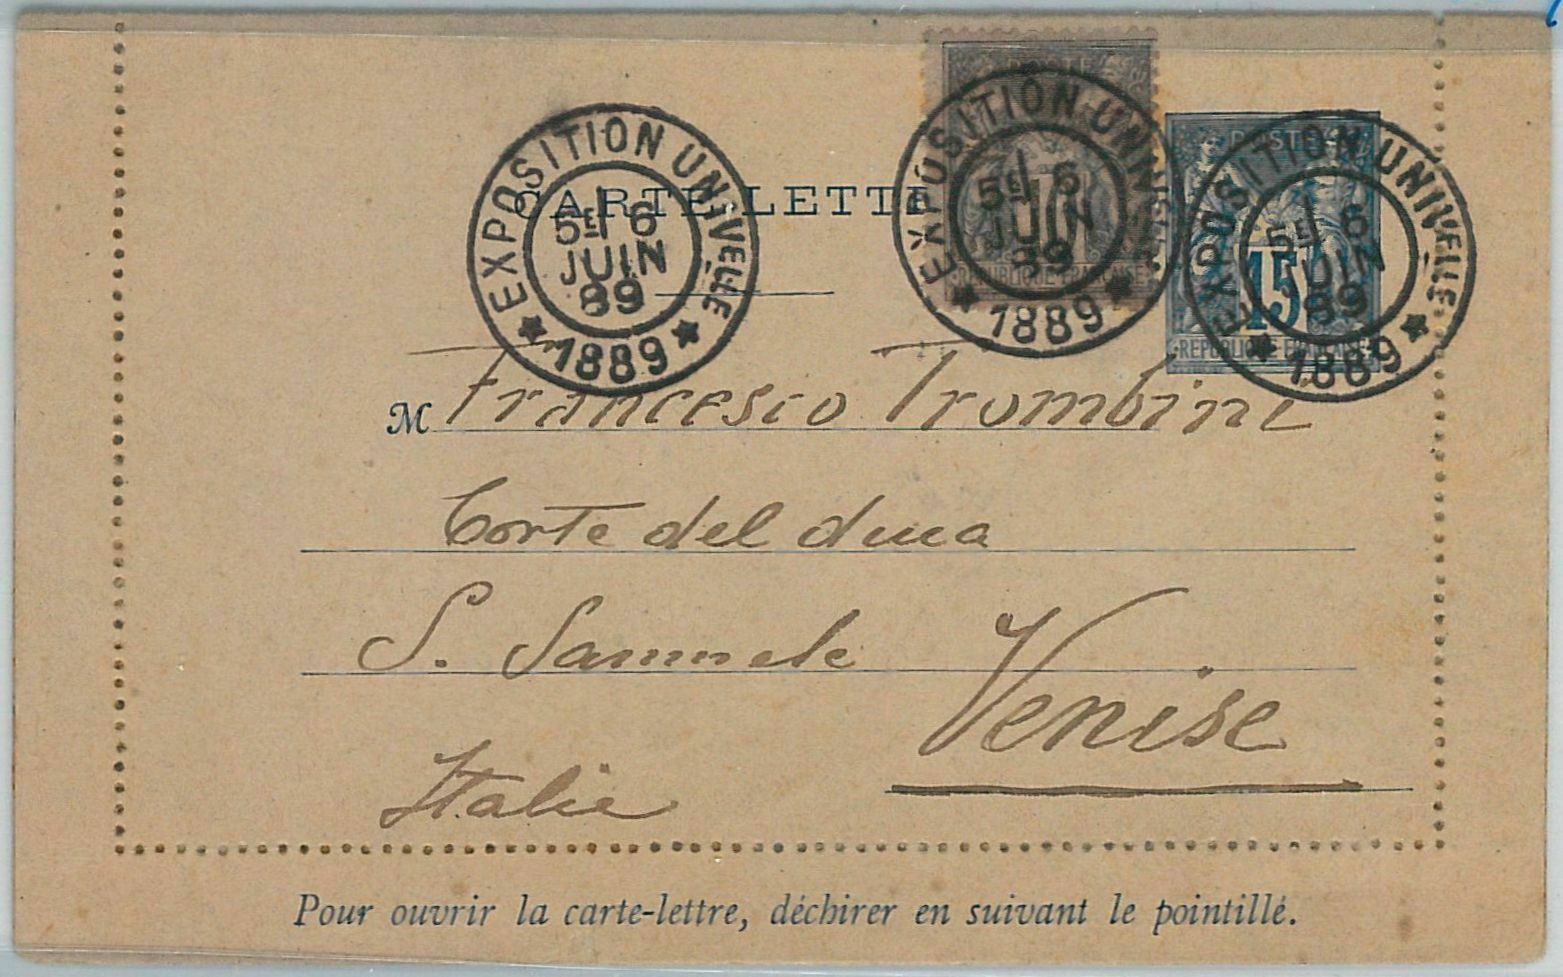 CARTE-LETTRE
EXPOSITION UNIVELLE
5E 6
JUIN
89
★ 1889 ★
POSTE
10
REPUBLIQUE FRANÇAISE
EXPOSITION UNIVELLE
5E 6
JUIN
89
★ 1889 ★
POSTE
15
REPUBLIQUE FRANÇAISE
EXPOSITION UNIVELLE
5E 6
JUIN
89
★ 1889 ★
M Francesco Trombini
Corte del duca
S. Samuele
Venise
Italie
Pour ouvrir la carte-lettre, déchirer en suivant le pointillé.